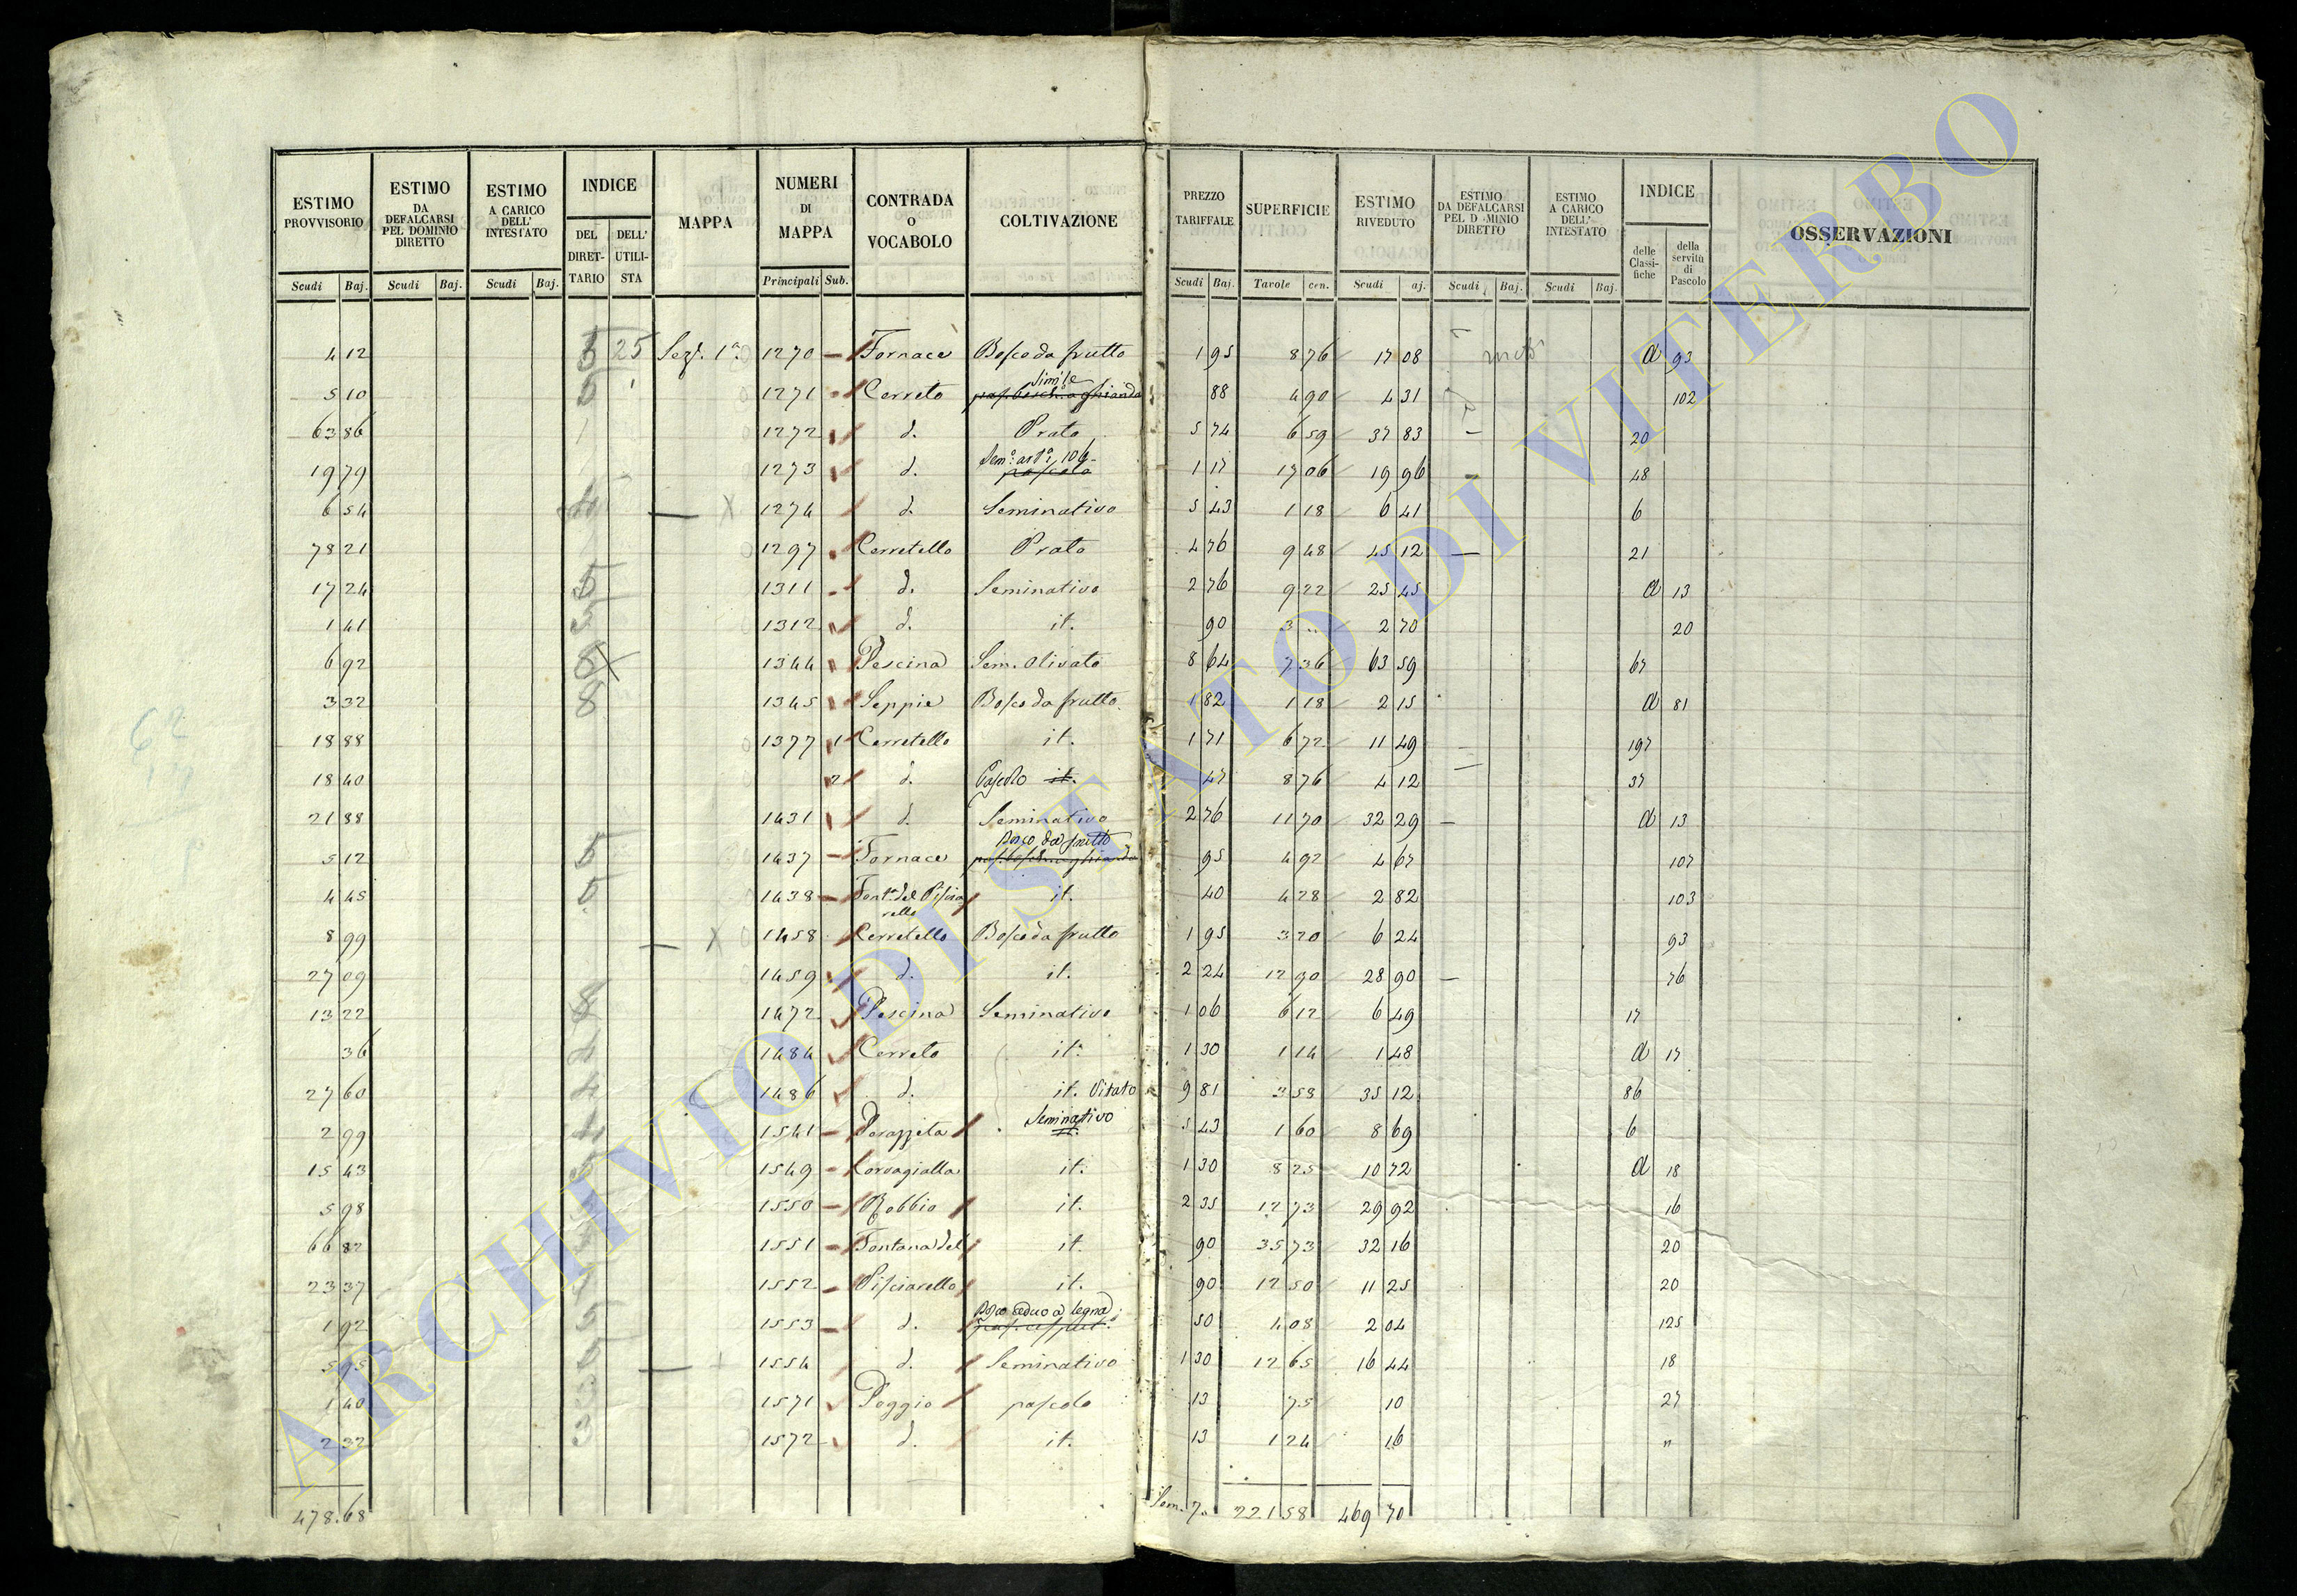 ESTIMO PROVVISORIO | ESTIMO DA DEFALCARSI PEL DOMINIO DIRETTO | ESTIMO A CARICO DELL' INTESTATO | INDICE | MAPPA | NUMERI DI MAPPA | CONTRADA O VOCABOLO | COLTIVAZIONE | PREZZO TARIFFALE | SUPERFICIE | ESTIMO RIVEDUTO | ESTIMO DA DEFALCARSI PEL D MINIO DIRETTO | ESTIMO A CARICO DELL' INTESTATO | INDICE | OSSERVAZIONI
DEL DIRETTARIO | DELL' UTILISTA | delle Classifiche | della servitù di Pascolo
Scudi | Baj. | Scudi | Baj. | Scudi | Baj. | Principali | Sub. | Scudi | Baj. | Tavole | cen. | Scudi | aj. | Scudi | Baj. | Scudi | Baj.
4 12 | 25 | Sez. 1ª | 1270 | Fornace | Bosco da frutto | 1 95 | 8 76 | 17 08 | a 93
simile
5 10 | 1271 | Cerreto | pas. bosch. a ghianda | 88 | 4 90 | 4 31 | 102
63 86 | 1272 | d. | Prato | 5 74 | 6 59 | 37 83 | 20
19 79 | 1273 | d. | pascolo | 1 17 | 17 06 | 19 96 | 48
6 54 | 1274 | d. | Seminativo | 5 43 | 1 18 | 6 41 | 6
78 21 | 1297 | Cerretello | Prato | 4 76 | 9 48 | 45 12 | 21
17 24 | 1311 | d. | Seminativo | 2 76 | 9 22 | 25 45 | a 13
1 41 | 1312 | d. | it. | 90 | 3 .. | 2 70 | 20
6 92 | 1344 | Pescina | Sem. olivato | 8 64 | 7 36 | 63 59 | 67
3 32 | 8 | 1345 | Seppie | Bosco da frutto | 1 82 | 1 18 | 2 15 | a 81
18 88 | 1377 | 1 | Cerretello | it. | 1 71 | 6 72 | 11 49 | 197
18 40 | 2 | d. | Pascolo it. | 47 | 8 76 | 4 12 | 37
21 88 | 1431 | d. | Seminativo | 2 76 | 11 70 | 32 29 | a 13
Bosco da frutto
5 12 | 5 | 1437 | Fornace | pas. bosch. a ghianda | 95 | 4 92 | 4 67 | 107
4 45 | 5 | 1438 | Font. del Pisciarello | it. | 40 | 4 28 | 2 82 | 103
8 99 | 1458 | Cerretello | Bosco da frutto | 1 95 | 3 20 | 6 24 | 93
27 09 | 1459 | d. | it. | 2 24 | 12 90 | 28 90 | 76
13 22 | 8 | 1472 | Pescina | Seminativo | 1 06 | 6 12 | 6 49 | 17
36 | 1484 | Cerreto | it. | 1 30 | 1 14 | 1 48 | a 17
27 60 | 1486 | d. | it. Vitato | 9 81 | 3 58 | 35 12 | 86
Seminativo
2 99 | 1541 | it. | 5 43 | 1 60 | 8 69 | 6
15 43 | 1549 | Corvagialla | it. | 1 30 | 8 25 | 10 72 | a 18
5 98 | 1550 | it. | 2 35 | 12 73 | 29 92 | 16
66 82 | 1551 | Fontana del | it. | 90 | 35 73 | 32 16 | 20
23 37 | 1552 | Pisciarello | it. | 90 | 12 50 | 11 25 | 20
Bosco ceduo a legna
1 92 | 1553 | d. | 50 | 4 08 | 2 04 | 125
5 95 | 1554 | d. | Seminativo | 1 30 | 12 65 | 16 44 | 18
1 40 | 1571 | Poggio | pascolo | 13 | 75 | 10 | 27
2 32 | 1572 | d. | it. | 13 | 1 24 | 16 | "
478.68 | 221 58 | 469 70
ARCHIVIO DI STATO DI VITERBO